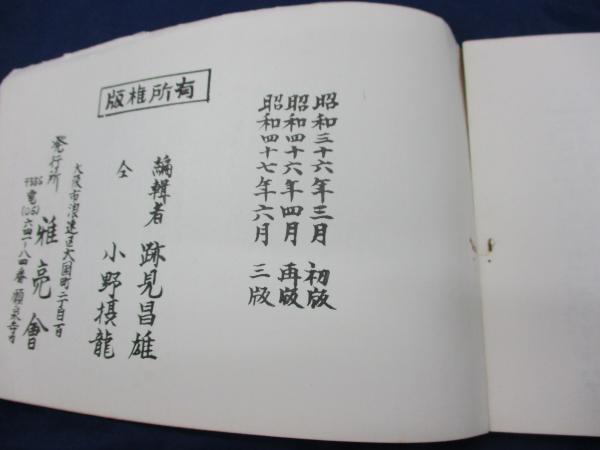 昭和三十六年三月 初版
昭和四十六年四月 再版
昭和四十七年六月 三版
版権所有
編輯者 跡見昌雄
仝 小野摂龍
大阪市浪速区大国町二丁目百
発行所 雅亮會
電(06)六四一-八四番 願泉寺内